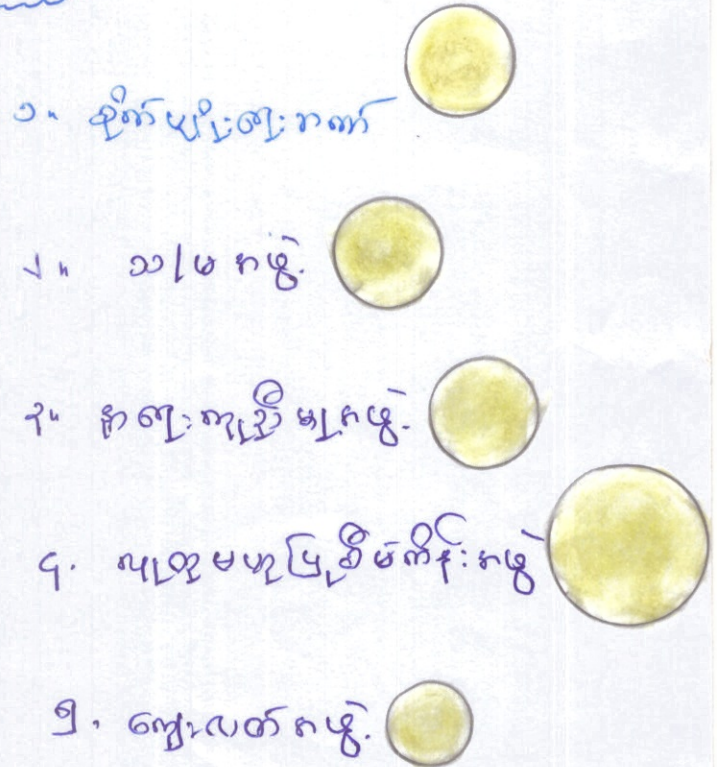 ၁။ စိုက်ပျိုးရေးဘဏ်
၂။ သ/မ အဖွဲ့.
၃။ နာရေးကူညီမှုအဖွဲ့.
၄. လူထုမဟုပြုစီမံကိန်းအဖွဲ့
၅. ကျေးလတ်အဖွဲ့.